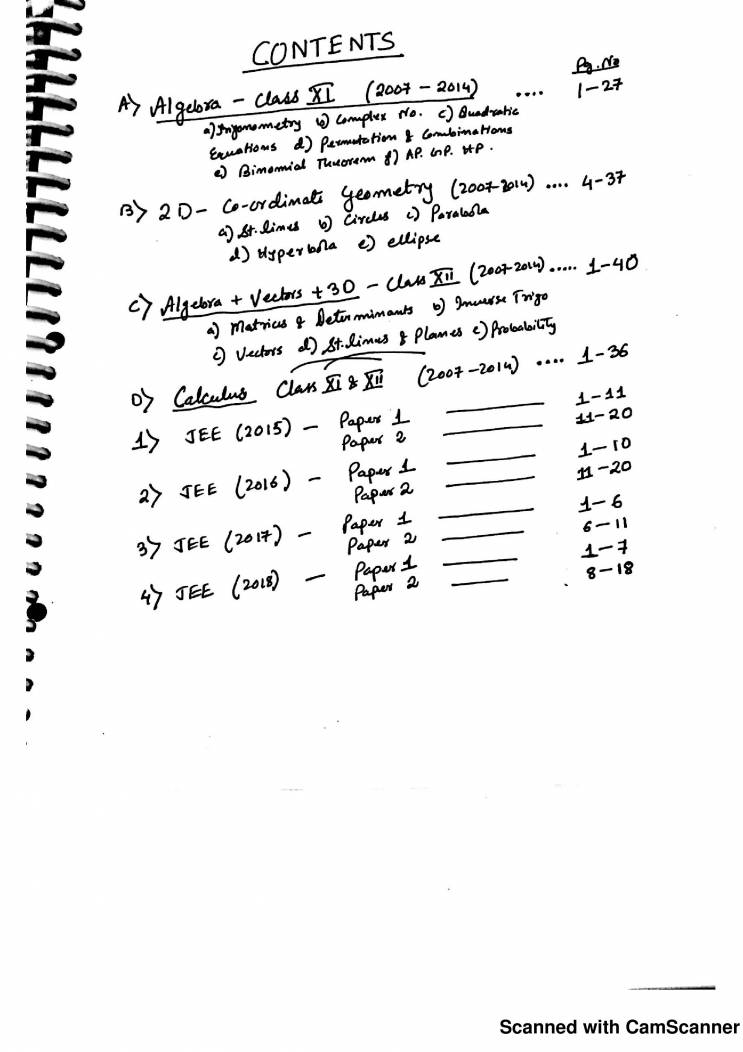 CONTENTS
Pg. No
A) Algebra - Class XI (2007 - 2014) .... 1-27
a) Trigonometry b) Complex No. c) Quadratic
Equations d) Permutation & Combinations
e) Binomial Theorem f) AP. GP. HP.
B) 2D - Co-ordinate Geometry (2007-2014) .... 4-37
a) St. lines b) Circles c) Parabola
d) Hyperbola e) ellipse
C) Algebra + Vectors + 3D - Class XII (2007-2014) ..... 1-40
a) Matrices & Determinants b) Inverse Trigo
c) Vectors d) St. lines & Planes e) Probability
D) Calculus Class XI & XII (2007-2014) .... 1-36
1) JEE (2015) - Paper 1 1-11
Paper 2 11-20
2) JEE (2016) - Paper 1 1-10
Paper 2 11-20
3) JEE (2017) - Paper 1 1-6
Paper 2 6-11
4) JEE (2018) - Paper 1 1-7
Paper 2 8-18
Scanned with CamScanner